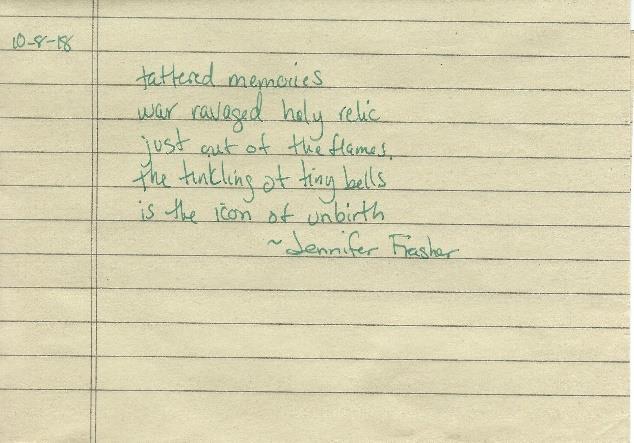 10-8-18
tattered memories
war ravaged holy relic
just out of the flames.
the tinkling of tiny bells
is the icon of unbirth
~Jennifer Frasher